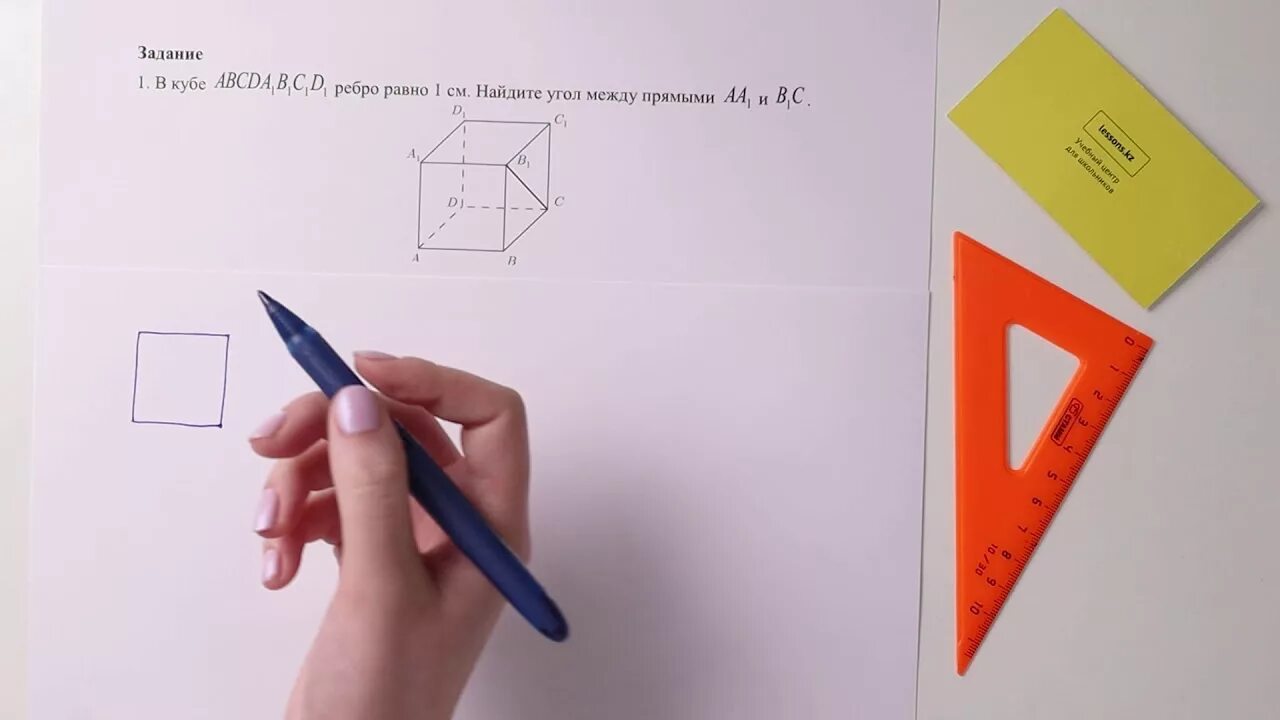 Задание
1. В кубе ABCDA₁B₁C₁D₁ ребро равно 1 см. Найдите угол между прямыми AA₁ и B₁C.
D₁
C₁
A₁
B₁
D
C
A
B
lessons.kz
Учебный центр
для школьников
0
1
2
3
СТАММ
4
5
6
7
8
10/30
9
10